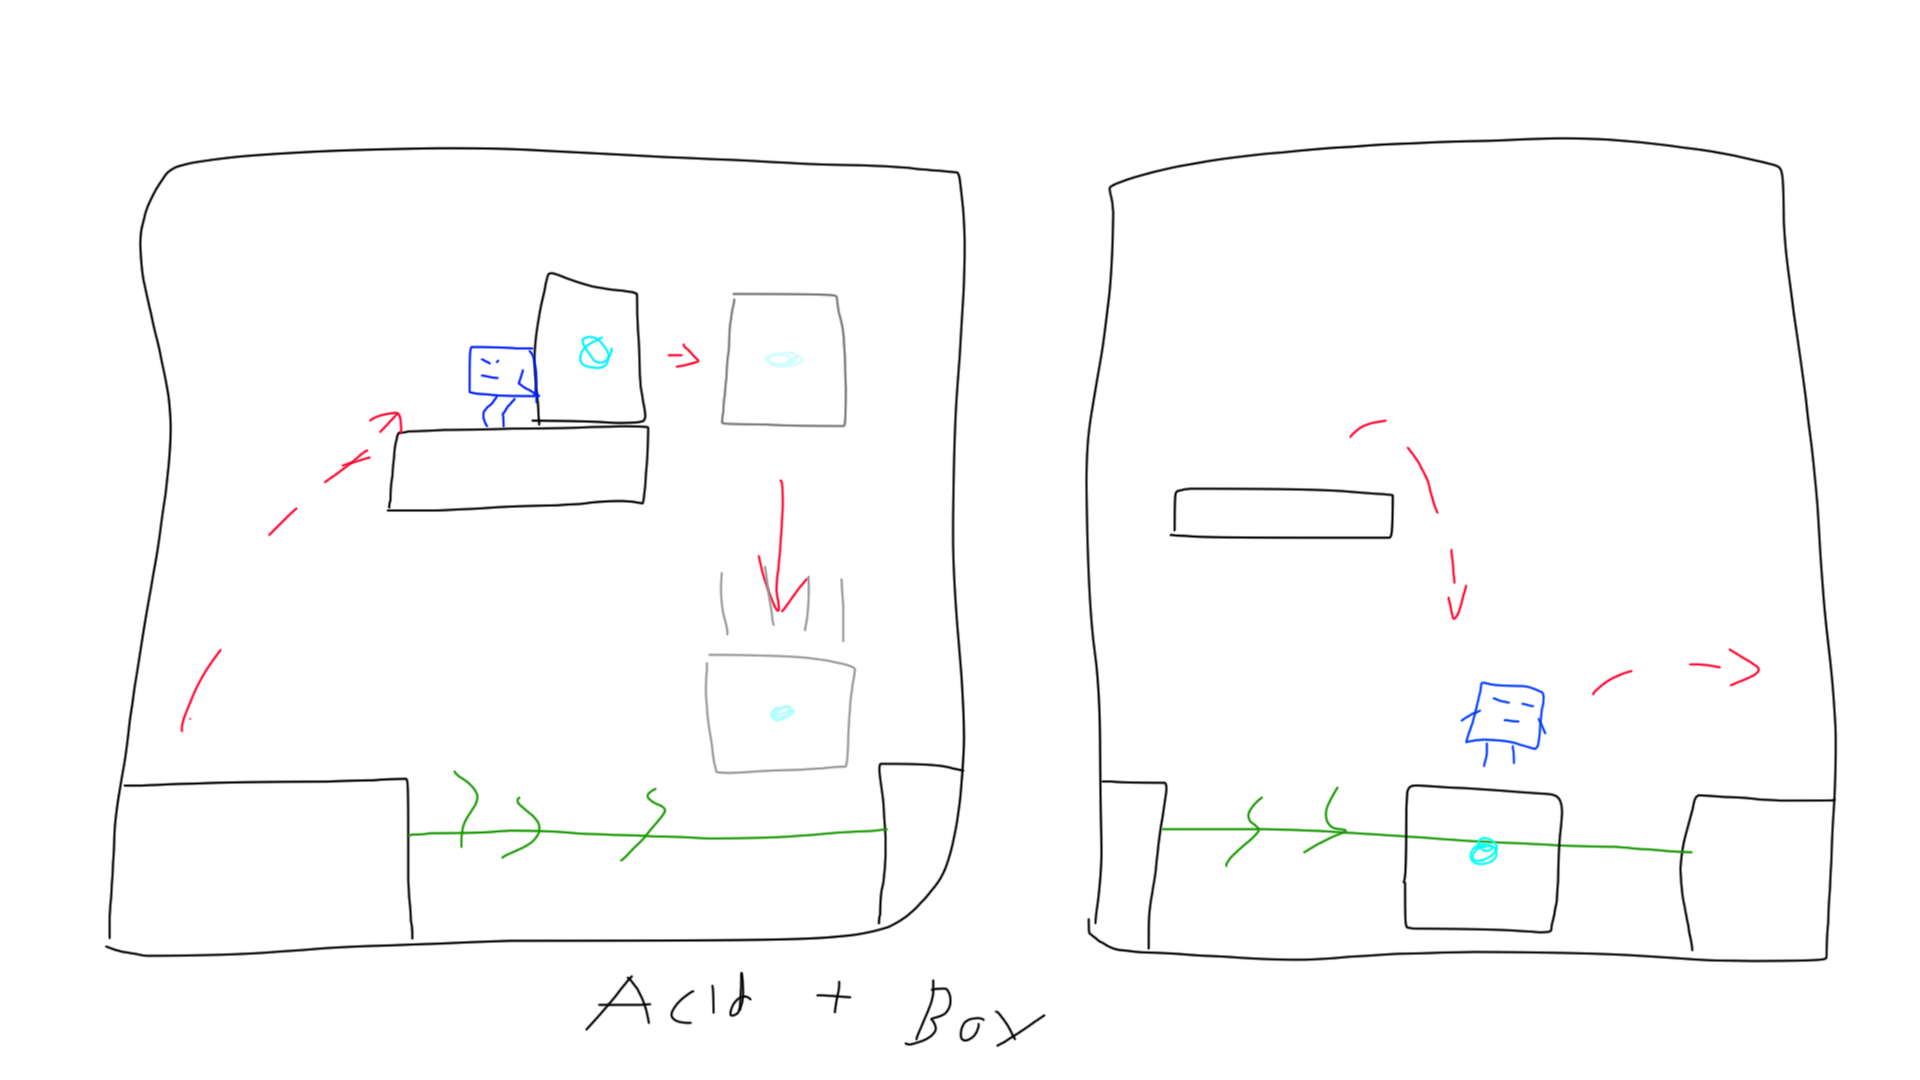 Acid + Box